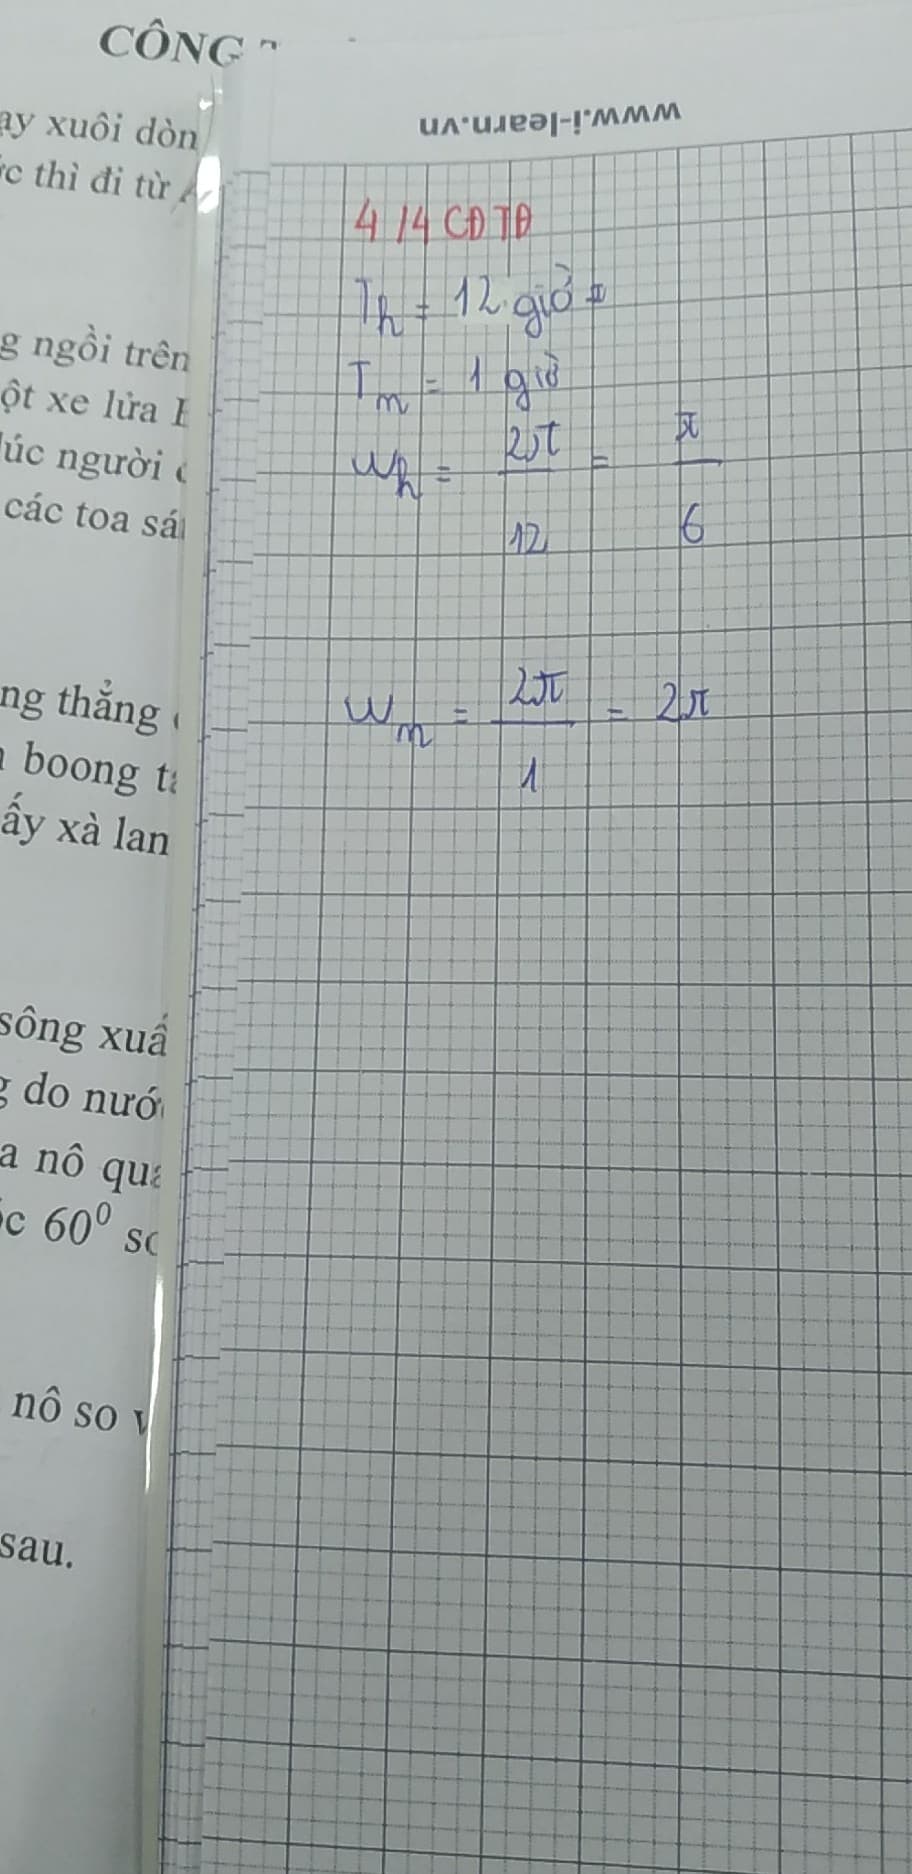 CÔNG
ay xuôi dòn
ớc thì đi từ
g ngồi trên
ột xe lửa
lúc người
các toa sá
ng thẳng
boong
ấy xà lan
sông xuấ
g do nướ
a nô qua
óc 60⁰ so
nô so v
sau.
www.i-learn.vn
4 14 CĐTĐ
T_h = 12 giờ =
T_m = 1 giờ
ω_h = 2π/12 = π/6
ω_m = 2π/1 = 2π